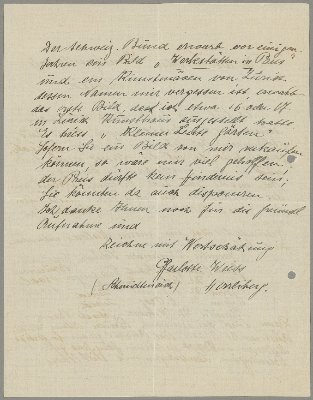 Der schweiz. Bund erwarb vor einigen
Jahren ein Bild „Werkstätten in Paris"
und ein Kunstmäzen von Zürich
dessen Namen mir vergessen ist erwarb
das erste Bild, das ich etwa 16 oder 17.
im Zürich Kunsthaus ausgestellt hatte
Es hiess „Kleiner
Sofern Sie ein Bild von mir verkaufen
können, so wäre mir viel geholfen
der Preis dürfte kein Hindernis sein,
Sie könnten da auch disponieren
Ich danke Ihnen noch für die freundl.
Aufnahme und
Zeichne mit Wertschätzung
Charlotte Weiss
Herrliberg.